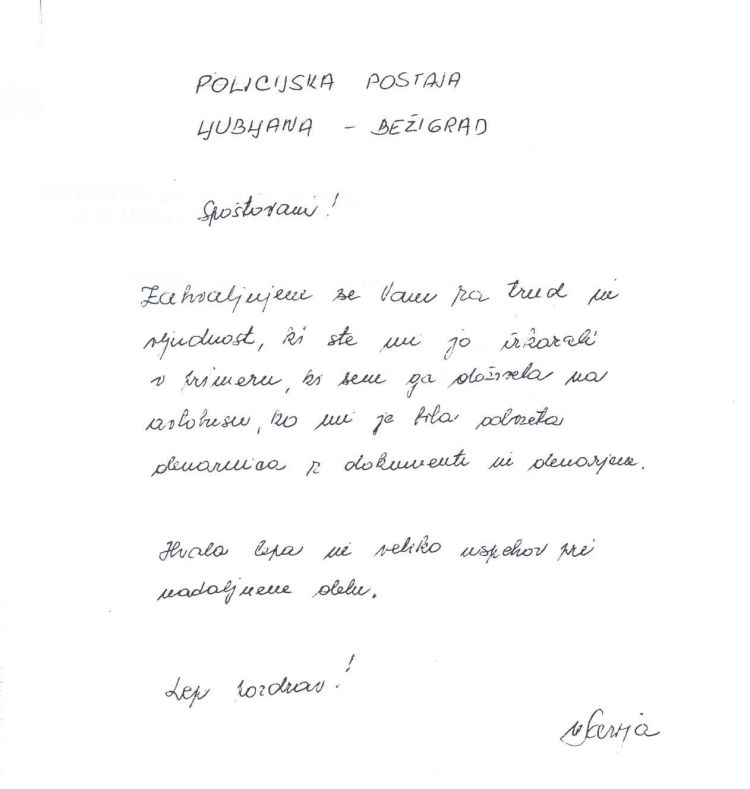 POLICIJSKA POSTAJA
LJUBLJANA - BEŽIGRAD
Spoštovani!
Zahvaljujem se Vam za trud in
vljudnost, ki ste mi jo izkazali
v primeru, ki sem ga doživela na
avtobusu, ko mi je bila odvzeta
denarnica z dokumenti in denarjem.
Hvala lepa in veliko uspehov pri
nadaljnem delu.
Lep pozdrav!